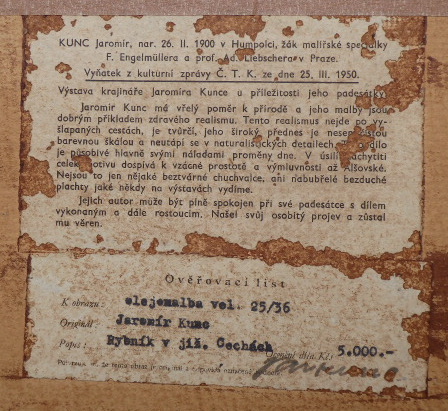 KUNC Jaromír, nar. 26. II. 1900 v Humpolci, žák malířské speciálky
F. Engelmüllera a prof. Ad. Liebschera v Praze.
Výňatek z kulturní zprávy Č. T. K. ze dne 25. III. 1950.
Výstava krajináře Jaromíra Kunce u příležitosti jeho padesátky.
Jaromír Kunc má vřelý poměr k přírodě a jeho malby jsou
dobrým příkladem zdravého realismu. Tento realismus nejde po vy-
šlapaných cestách, je tvůrčí, jeho široký přednes je nesen
barevnou škálou a neutápí se v naturalistických detailech,
je působivé hlavně svými náladami proměny dne. V úsilí zachytiti
celek motivu dospívá k vzácné prostotě a výmluvnosti až Alšovské.
Nejsou to jen nějaké beztvárné chuchvalce, ani nabubřelé bezduché
plachty jaké někdy na výstavách vydíme.
Jejich autor může být plně spokojen při své padesátce s dílem
vykonaným a dále rostoucím. Našel svůj osobitý projev a zůstal
mu věren.
Ověřovací list
K obrazu: olejomalba vel. 25/36
Originál: Jaromír Kunc
Popis: Rybník v již. Čechách
Kčs: 5.000.-